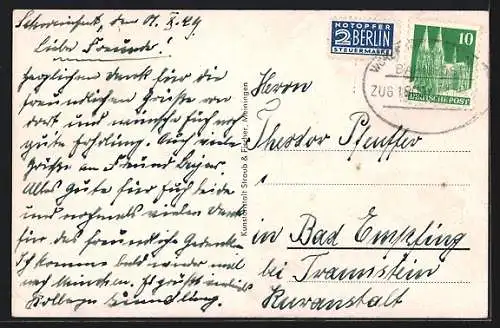 Schweinfurt, den 01.X.49
Liebe Freunde!
herzlichen Dank für die
freundlichen Grüße von
dort und wünsche Euch noch
gute Erholung. Auch viele
Grüße an Freund
Alles Gute für Euch beide
und nochmals vielen Dank
für das freundliche Gedenken
Ich komme bald wieder mal
nach München. Es grüßt
Kollege
Kunstanstalt Straub & Fischer, Meiningen
NOTOPFER
2 BERLIN
STEUERMARKE
10
DEUTSCHE POST
ZUG
Herrn
Theodor Pfeuffer
in Bad Empfing
bei Traunstein
Kuranstalt